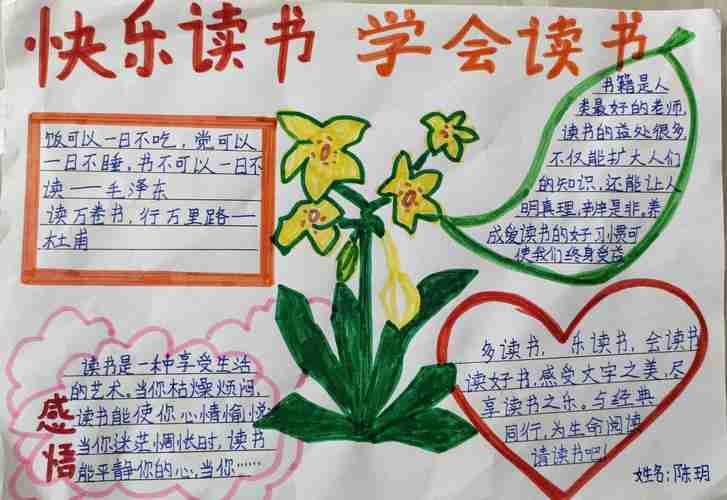 快乐读书 学会读书
饭可以一日不吃，觉可以
一日不睡，书不可以一日不
读——毛泽东
读万卷书，行万里路——
杜甫
书籍是人
类最好的老师，
读书的益处很多，
不仅能扩大人们
的知识，还能让人
明真理，辨是非。养
成爱读书的好习惯可
使我们终身受益
感悟
读书是一种享受生活
的艺术。当你枯燥烦闷，
读书能使你心情愉悦
当你迷茫惆怅时，读书
能平静你的心，当你……
多读书，乐读书，会读书
读好书，感受文字之美，尽
享读书之乐。与经典
同行，为生命阅读
请读书吧！
姓名：陈玥